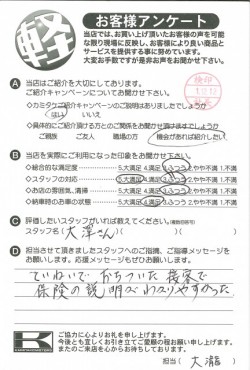 軽
お客様アンケート
当店では、お買い上げ頂いたお客様の声を可能
な限り現場に反映し、お客様により良い商品と
サービスを提供する事に努めております。
大変お手数ですが是非お声をお聞かせ下さい。
A 当店はご紹介を大切にしております。
ご紹介キャンペーンについてお聞かせ下さい。
◇カミタケご紹介キャンペーンのご説明はありましたでしょうか
はい いいえ
◇具体的にご紹介頂ける方とのご関係をお聞かせ頂けますでしょうか
ご親族 ご友人 職場の方 機会があれば紹介したい
B 当店を実際にご利用になった印象をお聞かせ下さい。
◇総合的な満足度 5.大満足 4.満足 3.ふつう 2.やや不満 1.不満
◇スタッフの対応 5.大満足 4.満足 3.ふつう 2.やや不満 1.不満
◇お店の雰囲気、清掃 5.大満足 4.満足 3.ふつう 2.やや不満 1.不満
◇納車時のお車の状態 5.大満足 4.満足 3.ふつう 2.やや不満 1.不満
C 評価したいスタッフがいれば教えてください。(複数回答可)
スタッフ名(大澤さん)( )
D 担当させて頂きましたスタッフへのご指摘、ご指導、
応援メッセージをお願いします。
ていねいで おちついた 接客で
保険の説明も わかりやすかった
ご協力に心よりお礼を申し上げます。
今後とも宜しくお引き立てご愛顧の程お願い申し上げます。
またのご来店を心からお待ちしております。
担当(大瀧)